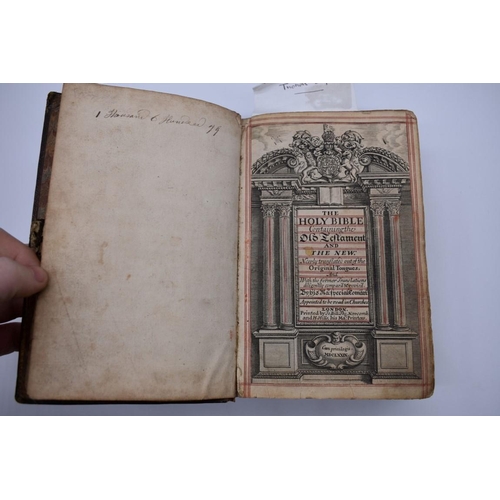 THE
HOLY BIBLE
Containing the
Old Testament
AND
THE NEW:
Newly translated out of the
Original Tongues,
And
With the former Translations
diligently compared and revised
By his Ma.ties special Comand
Appointed to be read in Churches
LONDON
Printed by
and his Ma.ties Printers
Cum privilegio